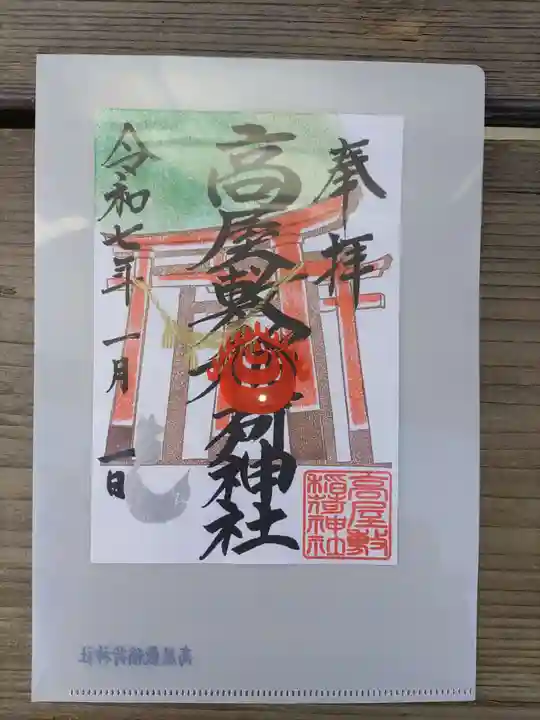 奉拝
高屋敷稲荷神社
令和七年 一月 一日
高屋敷
稲荷神社
高屋敷稲荷神社